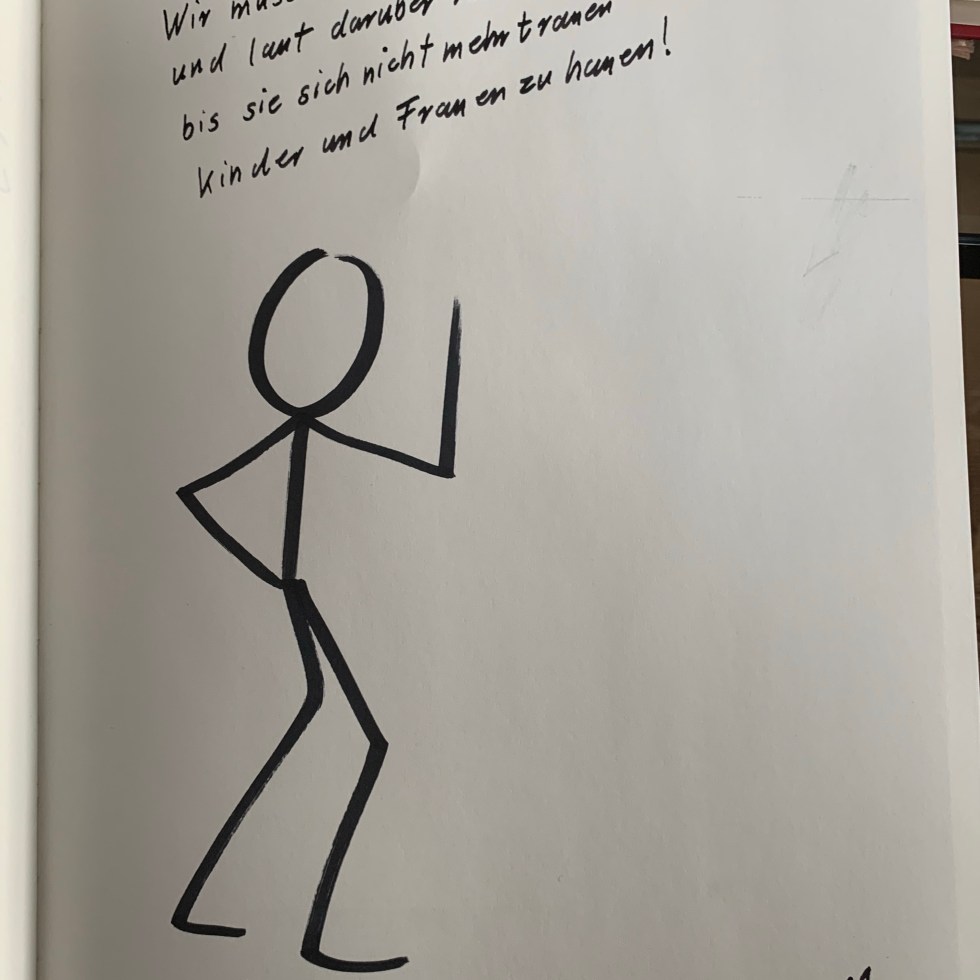 Wir
und laut darüber
bis sie sich nicht mehr trauen
Kinder und Frauen zu hauen!